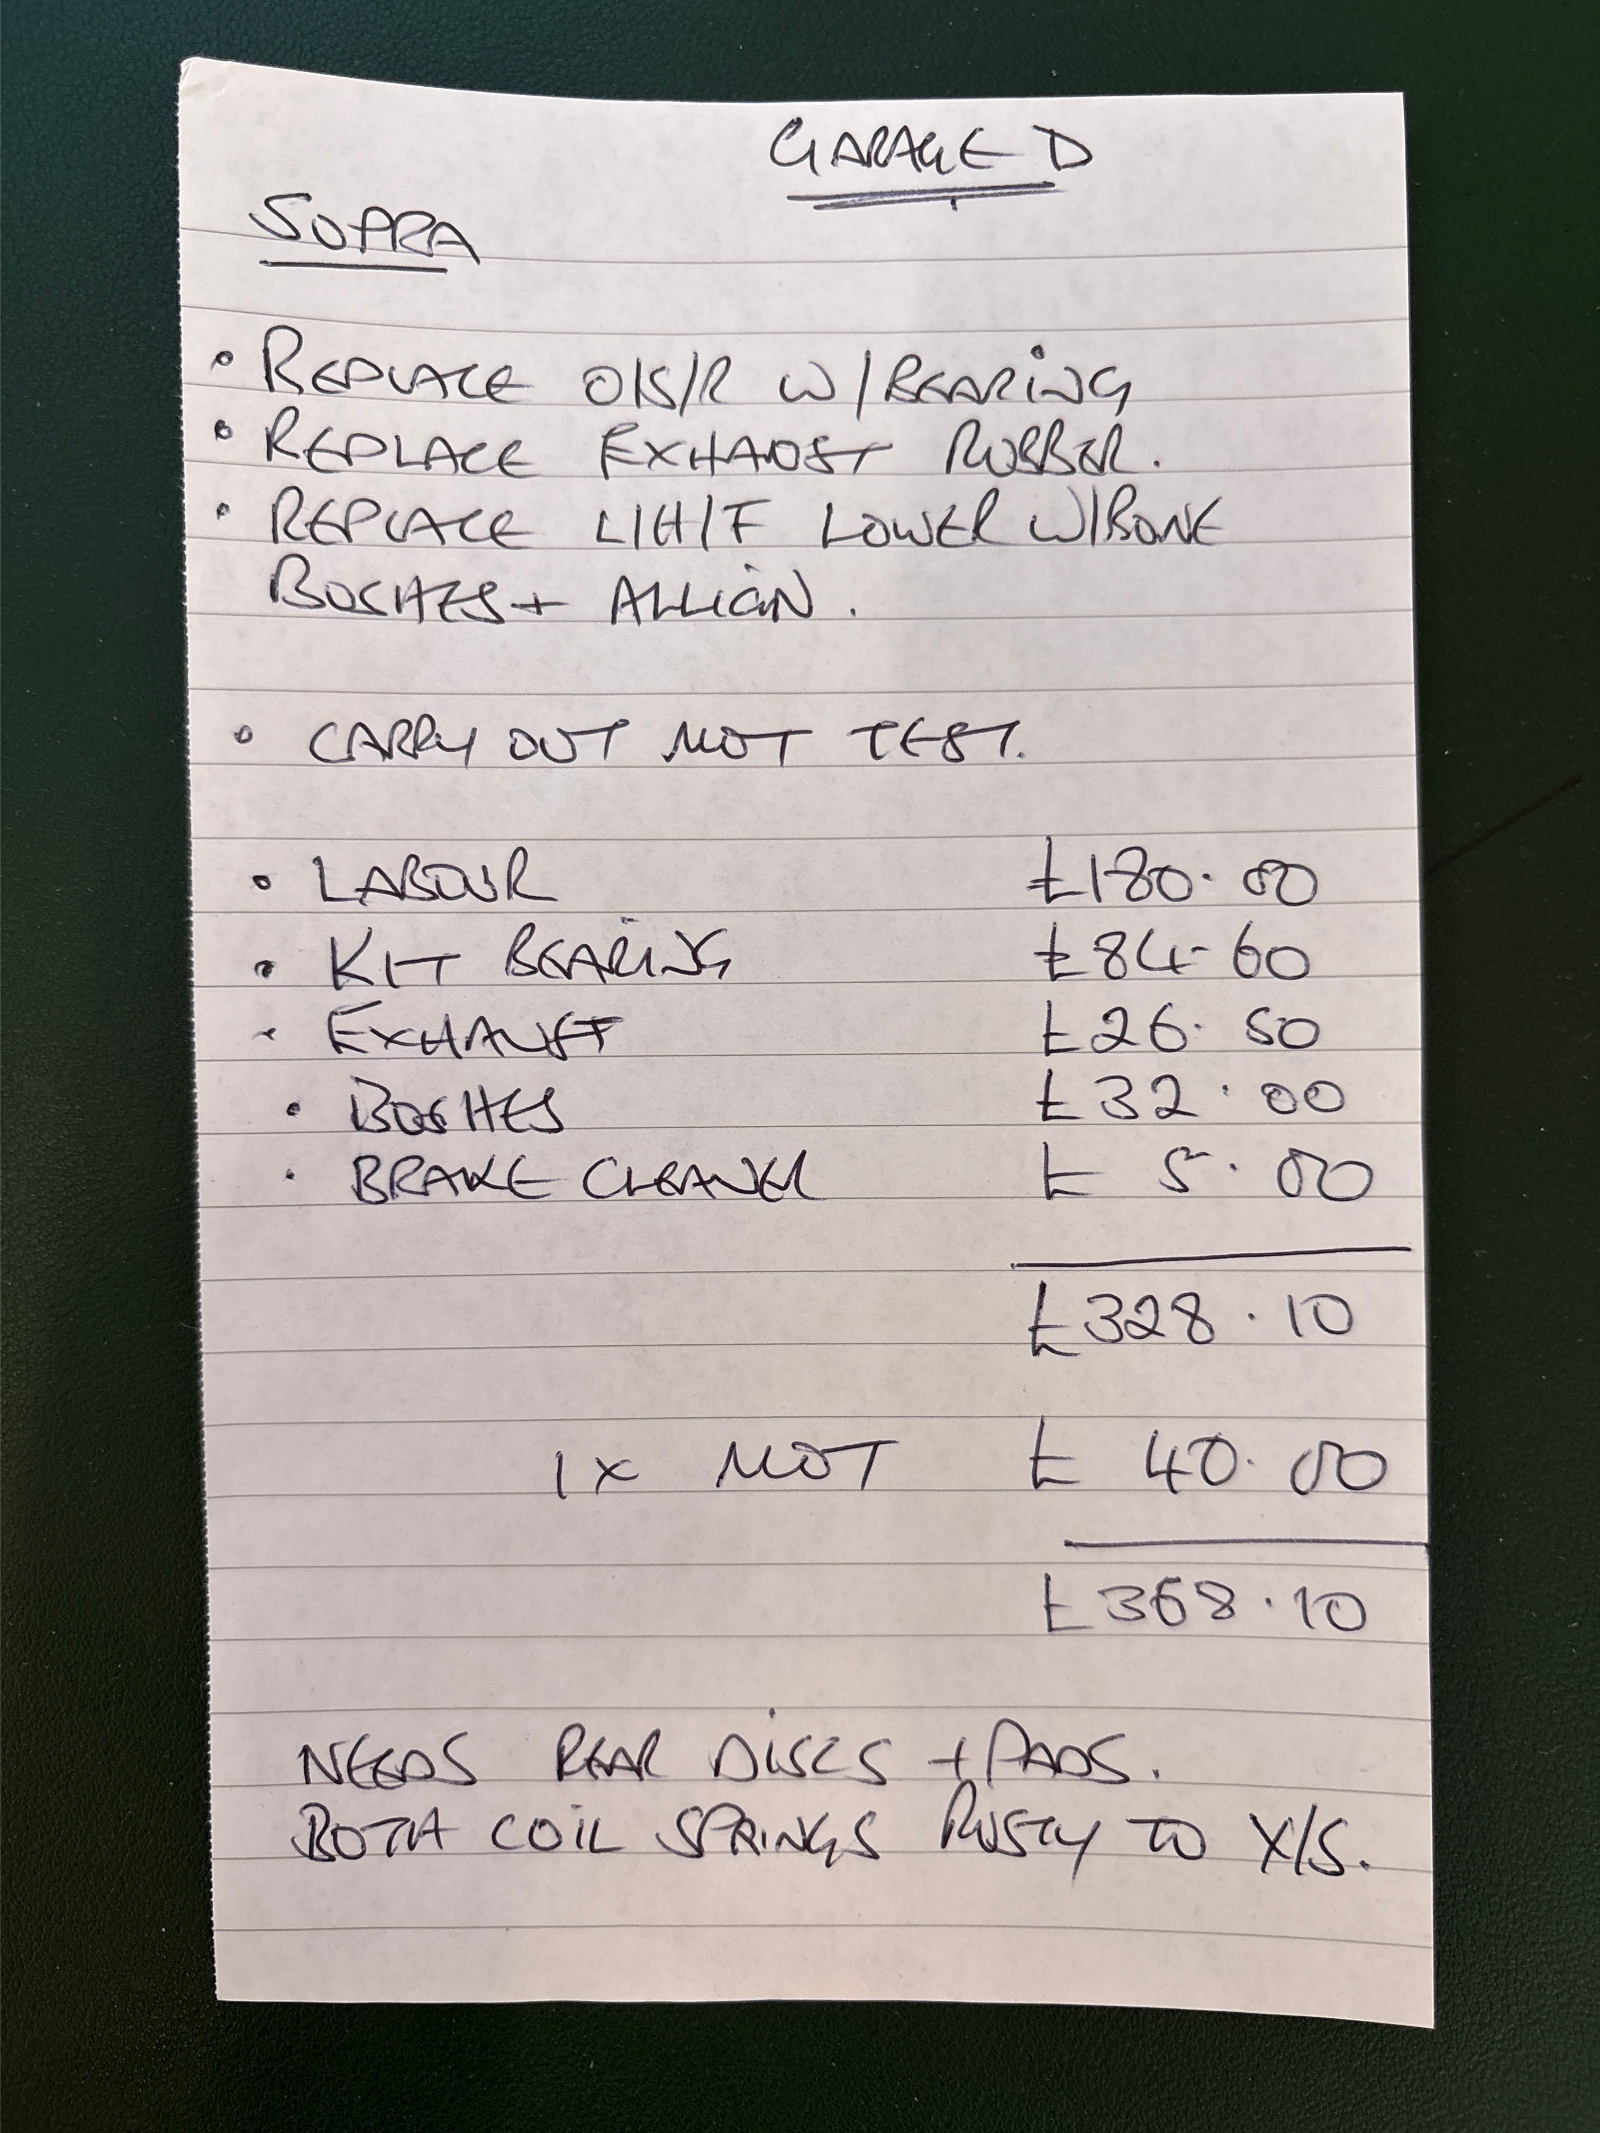 GARAGE D
SUPRA
• REPLACE O/S/R W/BEARING
• REPLACE EXHAUST RUBBER.
• REPLACE L/H/F LOWER W/BONE
BUSHES + ALLIGN.
• CARRY OUT MOT TEST.
• LABOUR £180.00
• KIT BEARING £84-60
• EXHAUST £26.50
• BUSHES £32.00
• BRAKE CLEANER £ 5.00
£328.10
1x MOT £ 40.00
£368.10
NEEDS REAR DISCS + PADS.
BOTH COIL SPRINGS RUSTY TO X/S.